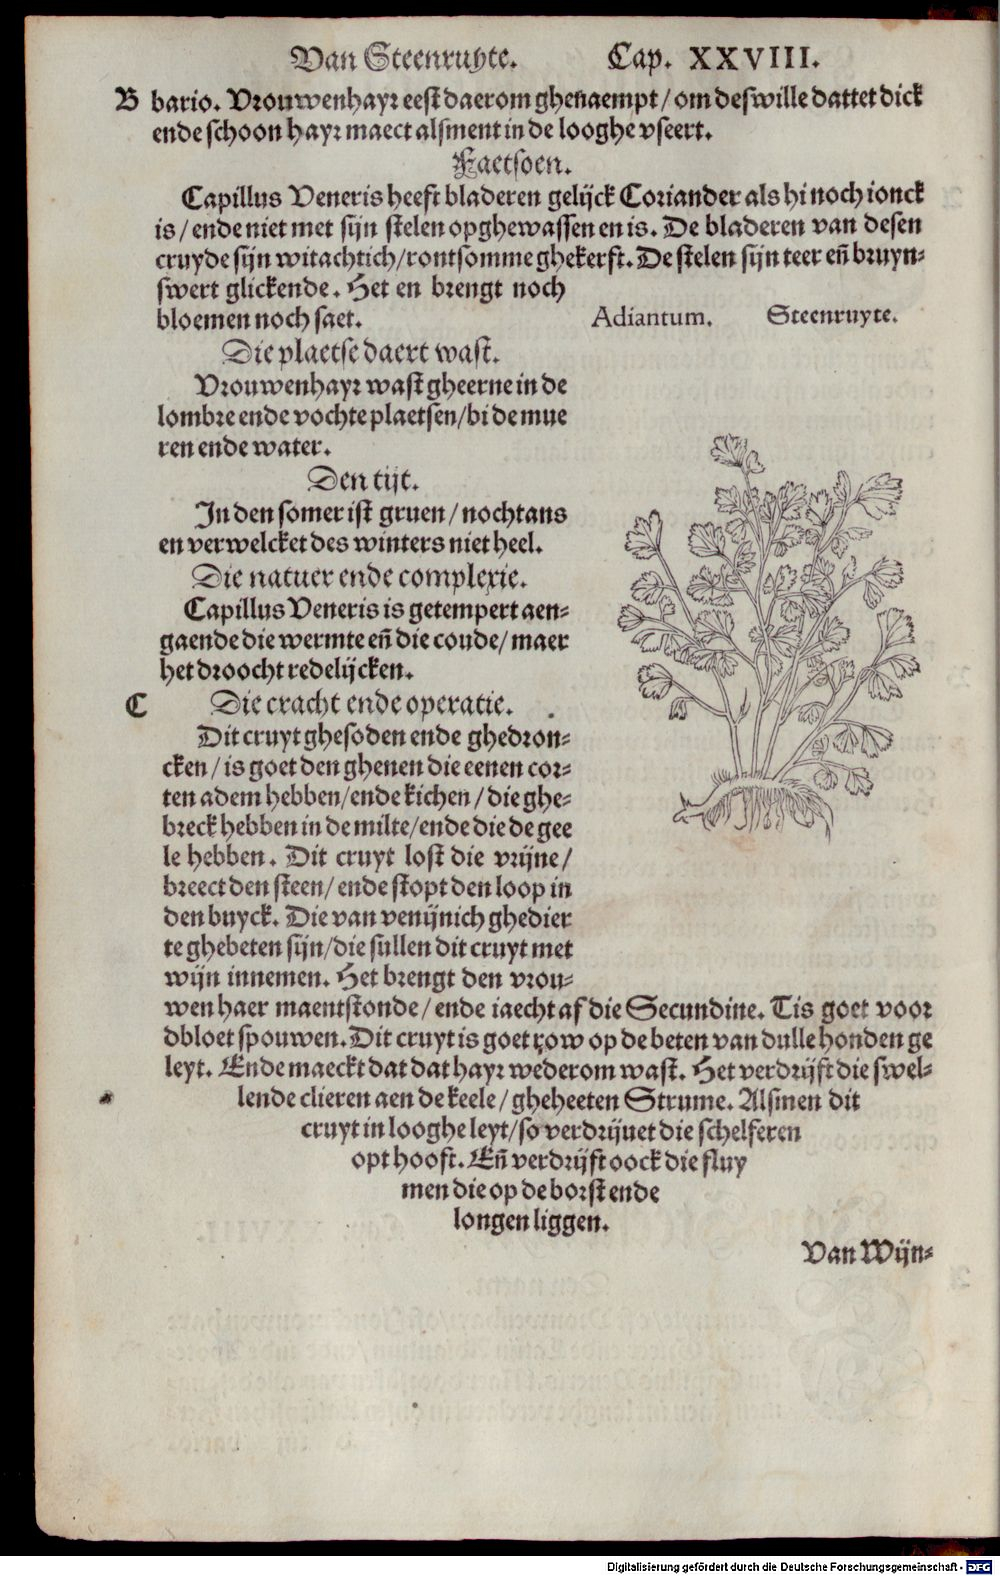 Van Steenruyte. Cap. XXVIII.
B bario. Vrouwenhayr eest daerom ghenaempt / om deswille dattet dick
ende schoon hayr maect alsment in de looghe vseert.
Faetsoen.
Capillus Veneris heeft bladeren gelijck Coriander als hi noch ionck
is / ende niet met sijn stelen opghewassen en is. De bladeren van desen
cruyde sijn witachtich/rontsomme ghekerft. De stelen sijn teer eñ bruyn-
swert glickende. Het en brengt noch
bloemen noch saet.
Adiantum. Steenruyte.
Die plaetse daert wast.
Vrouwenhayr wast gheerne in de
lombre ende vochte plaetsen/bi de mue
ren ende water.
Den tijt.
In den somer ist gruen / nochtans
en verwelcket des winters niet heel.
Die natuer ende complexie.
Capillus Veneris is getempert aen-
gaende die wermte eñ die coude/ maer
het droocht redelijcken.
C Die cracht ende operatie.
Dit cruyt ghesoden ende ghedron-
cken / is goet den ghenen die eenen cor-
ten adem hebben/ende kichen / die ghe-
breck hebben in de milte/ende die de gee
le hebben. Dit cruyt lost die vrijne/
breect den steen/ende stopt den loop in
den buyck. Die van venijnich ghedier
te ghebeten sijn/die sullen dit cruyt met
wijn innemen. Het brengt den vrou-
wen haer maentstonde/ ende iaecht af die Secundine. Tis goet voor
dbloet spouwen. Dit cruyt is goet row op de beten van dulle honden ge
leyt. Ende maeckt dat dat hayr wederom wast. Het verdrijft die swel-
lende clieren aen de keele/ gheheeten Strume. Alsmen dit
cruyt in looghe leyt/so verdrijuet die schelferen
opt hooft. Eñ verdrijft oock die fluy
men die op de borst ende
longen liggen.
Van Wijn-
Digitalisierung gefördert durch die Deutsche Forschungsgemeinschaft - DFG